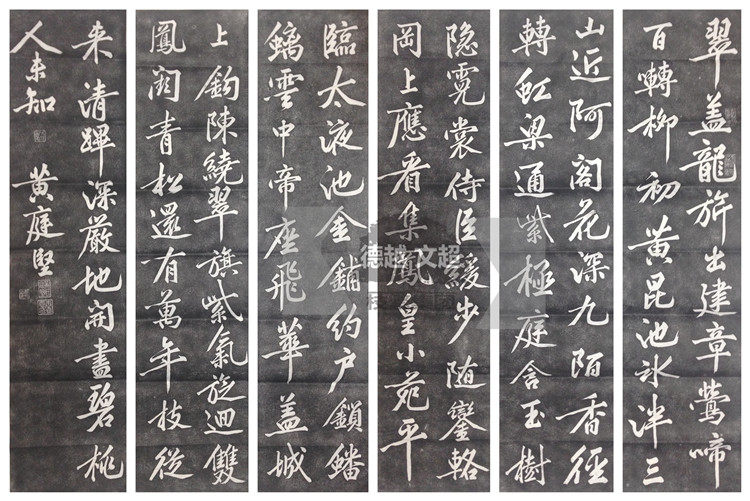 翠盖龍旂出建章鶯啼
百囀柳初黄昆池冰泮三
山近阿閣花深九陌香徑
轉虹梁通紫極庭含玉樹
隐霓裳侍臣緩步随鑾輅
岡上應看集鳳皇小苑平
臨太液池金鋪約户鎖蟠
螭雲中帝座飛華蓋城
上鈎陳繞翠旗紫氣旋迴雙
鳳闕青松還有萬年枝從
来清蹕深嚴地開盡碧桃
人未知 黄庭堅
德越 文超